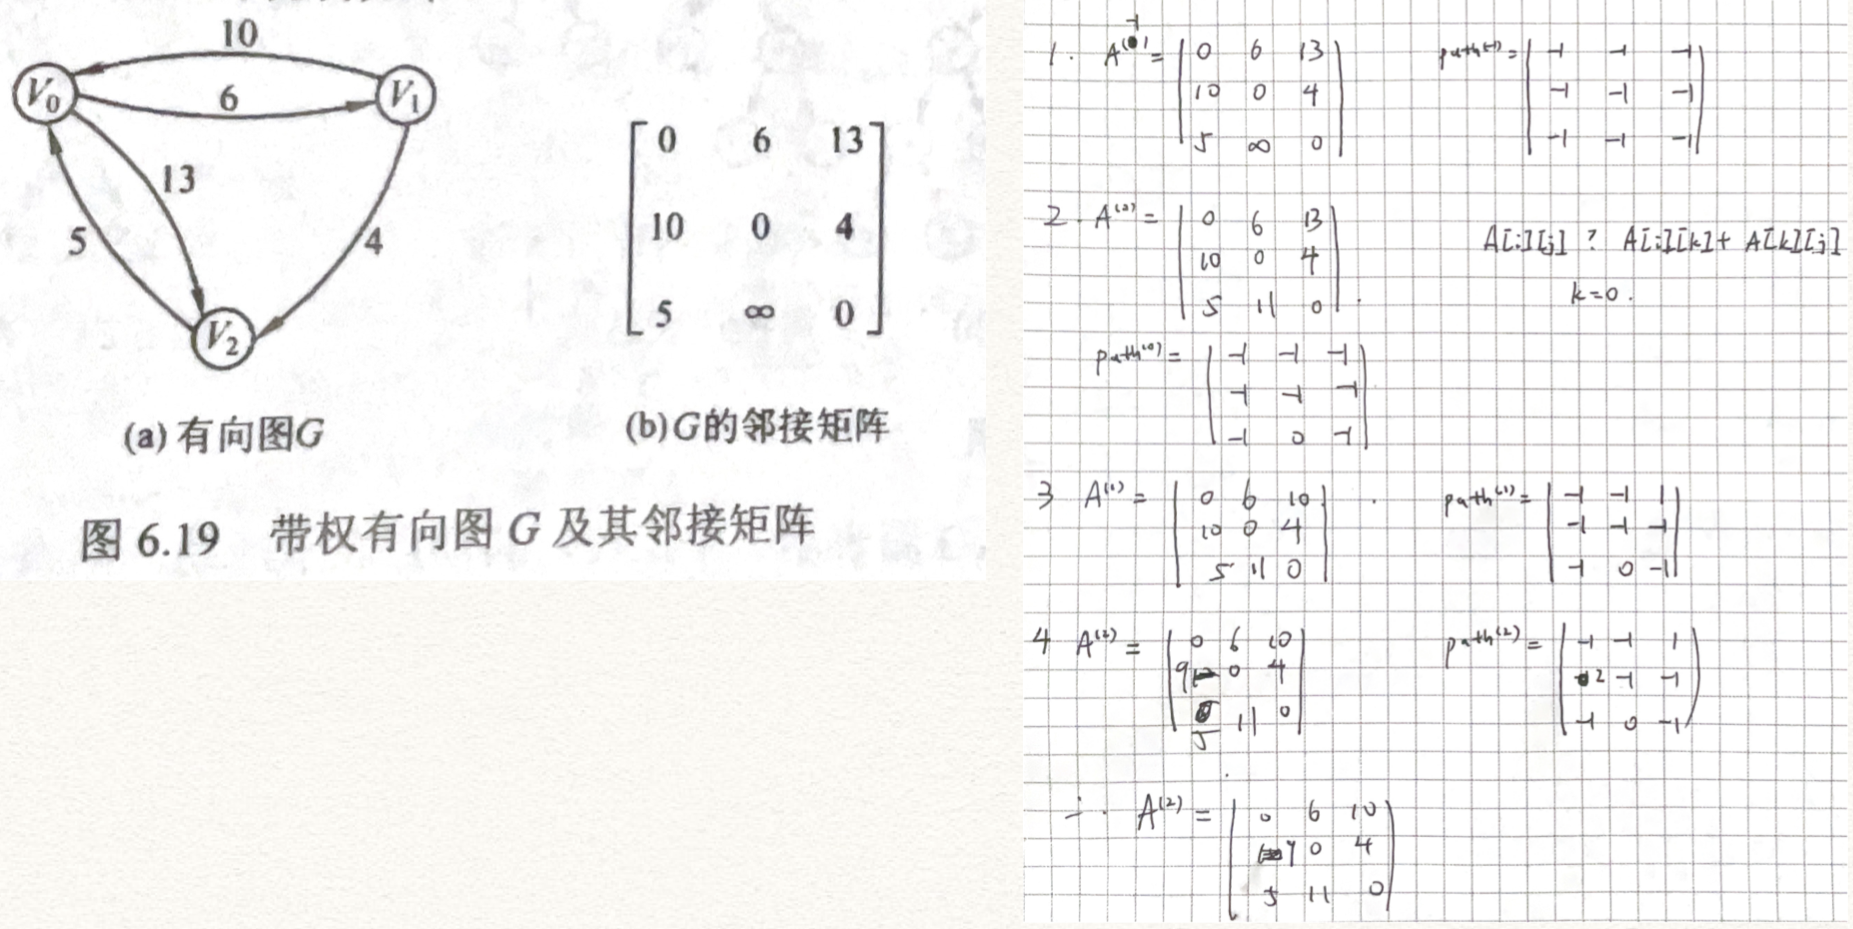 10
V₀ 6 V₁
13
5 4
V₂
(a) 有向图G
0 6 13
10 0 4
5 ∞ 0
(b) G的邻接矩阵
图 6.19 带权有向图 G 及其邻接矩阵
1. A⁽⁻¹⁾ = 0 6 13
10 0 4
5 ∞ 0
path⁽⁻¹⁾ = -1 -1 -1
-1 -1 -1
-1 -1 -1
2. A⁽⁰⁾ = 0 6 13
10 0 4
5 11 0
A[i][j] ? A[i][k] + A[k][j]
k=0.
path⁽⁰⁾ = -1 -1 -1
-1 -1 -1
-1 0 -1
3 A⁽¹⁾ = 0 6 10
10 0 4
5 11 0
path⁽¹⁾ = -1 -1 1
-1 -1 -1
-1 0 -1
4 A⁽²⁾ = 0 6 10
9 0 4
5 11 0
path⁽²⁾ = -1 -1 1
2 -1 -1
-1 0 -1
A⁽²⁾ = 0 6 10
9 0 4
5 11 0